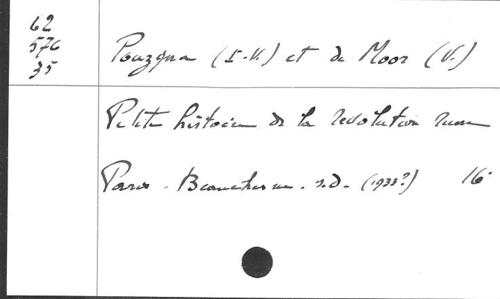 62
576
35
Pouzyna (I-V.) et de Moor (V.)
Petite histoire de la révolution russe
Paris. s.d. (1933?) 16°